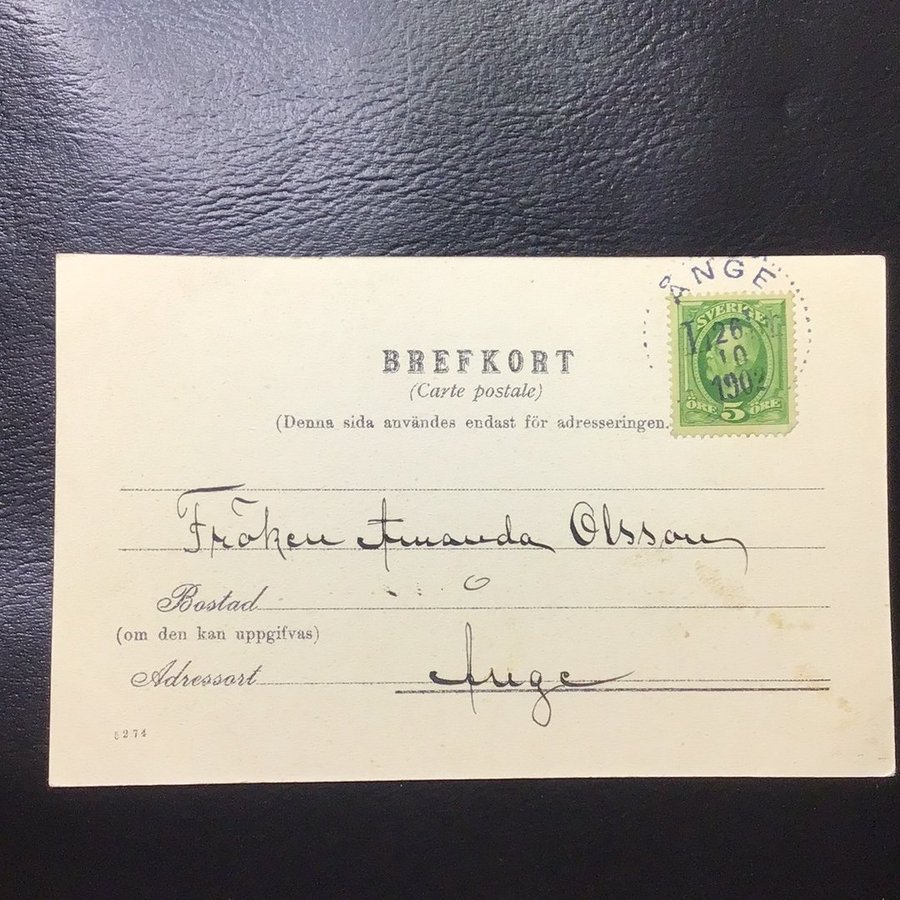 ÅNGE
SVERIGE
26
10
1902
ÖRE 5 ÖRE
BREFKORT
(Carte postale)
(Denna sida användes endast för adresseringen.
Fröken Amanda Olsson
Bostad
(om den kan uppgifvas)
Adressort Ånge
5274